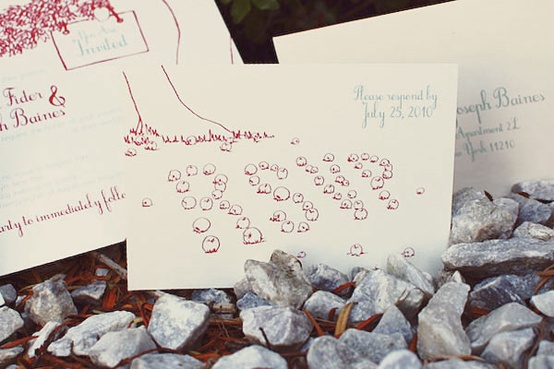 You Are
Invited
Fider &
h Baines
arty to immediately follo
Please respond by
July 25, 2010
RSVP
oseph Baines
Apartment 2L
ew York 11210